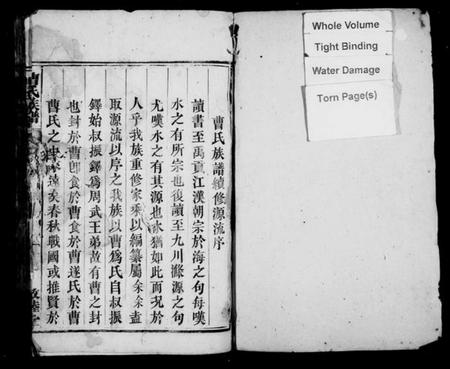 曹氏族譜續修源流序
讀書至禹貢江漢朝宗於海之句每嘆
水之有所宗也後讀至九川滌源之句
尤嘆水之有其源也水猶如此而況於
人乎我族重修家乘以編纂屬余余盍
取源流以序之我族以曹爲氏自叔振
鐸始叔振鐸爲周武王弟故有曹之封
也封於曹卽食於曹食於曹遂氏於曹
曹氏之由來遠矣春秋戰國或推賢於
曹氏族譜
Whole Volume
Tight Binding
Water Damage
Torn Page(s)